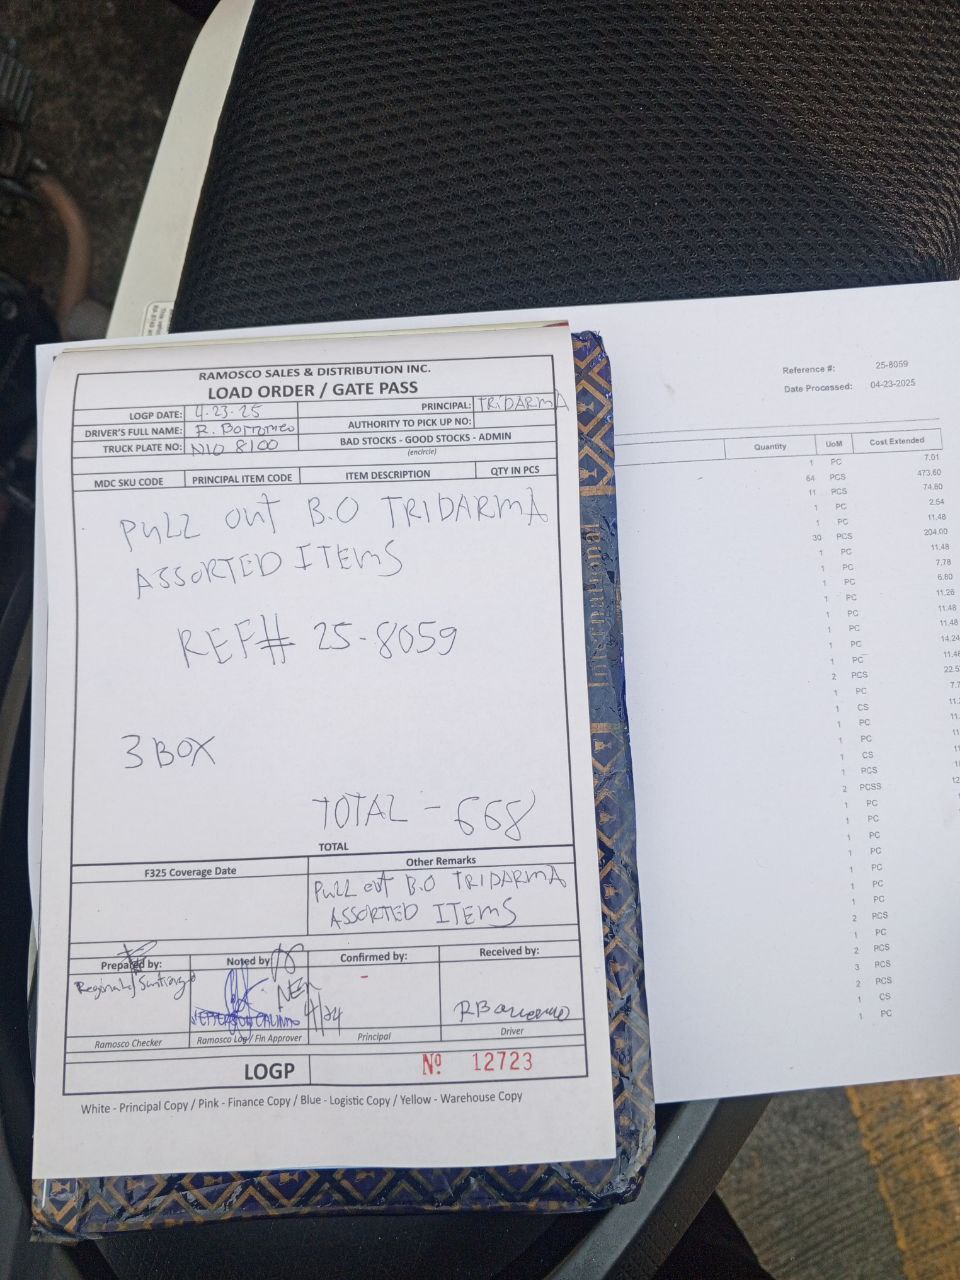 RAMOSCO SALES & DISTRIBUTION INC.
LOAD ORDER / GATE PASS
LOGP DATE: 4.23.25
PRINCIPAL: TRIDARMA
DRIVER'S FULL NAME: R. Borromeo
AUTHORITY TO PICK UP NO:
TRUCK PLATE NO: NIO 8100
BAD STOCKS - GOOD STOCKS - ADMIN
(encircle)
MDC SKU CODE PRINCIPAL ITEM CODE ITEM DESCRIPTION QTY IN PCS
PULL OUT B.O TRIDARMA
ASSORTED ITEMS
REF# 25-8059
3 BOX
TOTAL - 668
TOTAL
F325 Coverage Date
Other Remarks
PULL OUT B.O TRIDARMA
ASSORTED ITEMS
Prepared by: Noted by: Confirmed by: Received by:
4/24
Ramosco Checker Ramosco Log / Fin Approver Principal Driver
LOGP Nº 12723
White - Principal Copy / Pink - Finance Copy / Blue - Logistic Copy / Yellow - Warehouse Copy
Reference #: 25-8059
Date Processed: 04-23-2025
Quantity UoM Cost Extended
1 PC 7.01
64 PCS 473.60
11 PCS 74.80
1 PC 2.54
1 PC 11.48
30 PCS 204.00
1 PC 11.48
1 PC 7.78
1 PC 6.80
1 PC 11.26
1 PC 11.48
1 PC 11.48
1 PC 14.24
1 PC
2 PCS
1 PC
1 CS
1 PC
1 PC
1 CS
1 PCS
2 PCSS
1 PC
1 PC
1 PC
1 PC
1 PC
1 PC
1 PC
2 PCS
1 PC
2 PCS
3 PCS
2 PCS
1 CS
1 PC